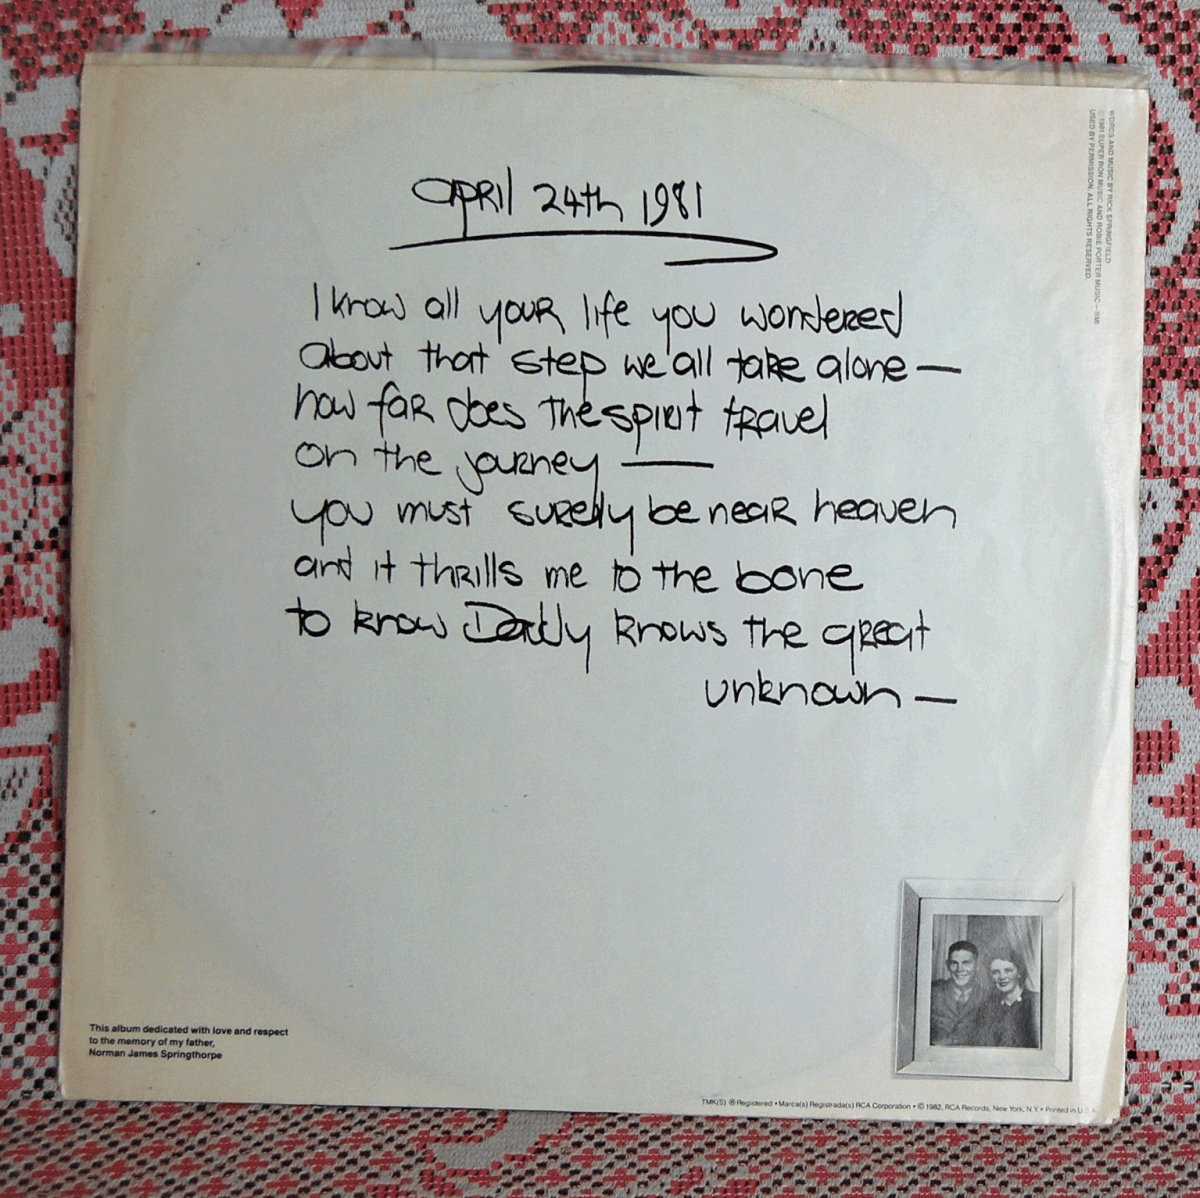 WORDS AND MUSIC BY RICK SPRINGFIELD
©1981 SUPER RON MUSIC AND ROBIE PORTER MUSIC—BMI
USED BY PERMISSION. ALL RIGHTS RESERVED.
APRIL 24th 1981
I know all your life you wondered
About that step we all take alone —
how far does the spirit travel
on the journey —
you must surely be near heaven
and it thrills me to the bone
to know Daddy knows the great
unknown —
This album dedicated with love and respect
to the memory of my father,
Norman James Springthorpe
TMK(S) ® Registered • Marca(s) Registrada(s) RCA Corporation • © 1982, RCA Records, New York, N.Y. • Printed in U.S.A.